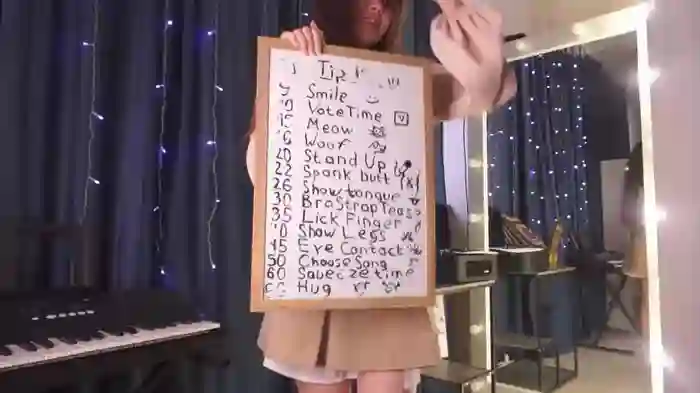 Tip
5 Smile
VoteTime V
15 Meow
Woof
20 Stand Up
22 Spank butt
26 Show tongue
30 BraStrapTeas
35 Lick Finger
Show Legs
45 Eye Contact
50 Choose Song
60 Squeeze time
Hug